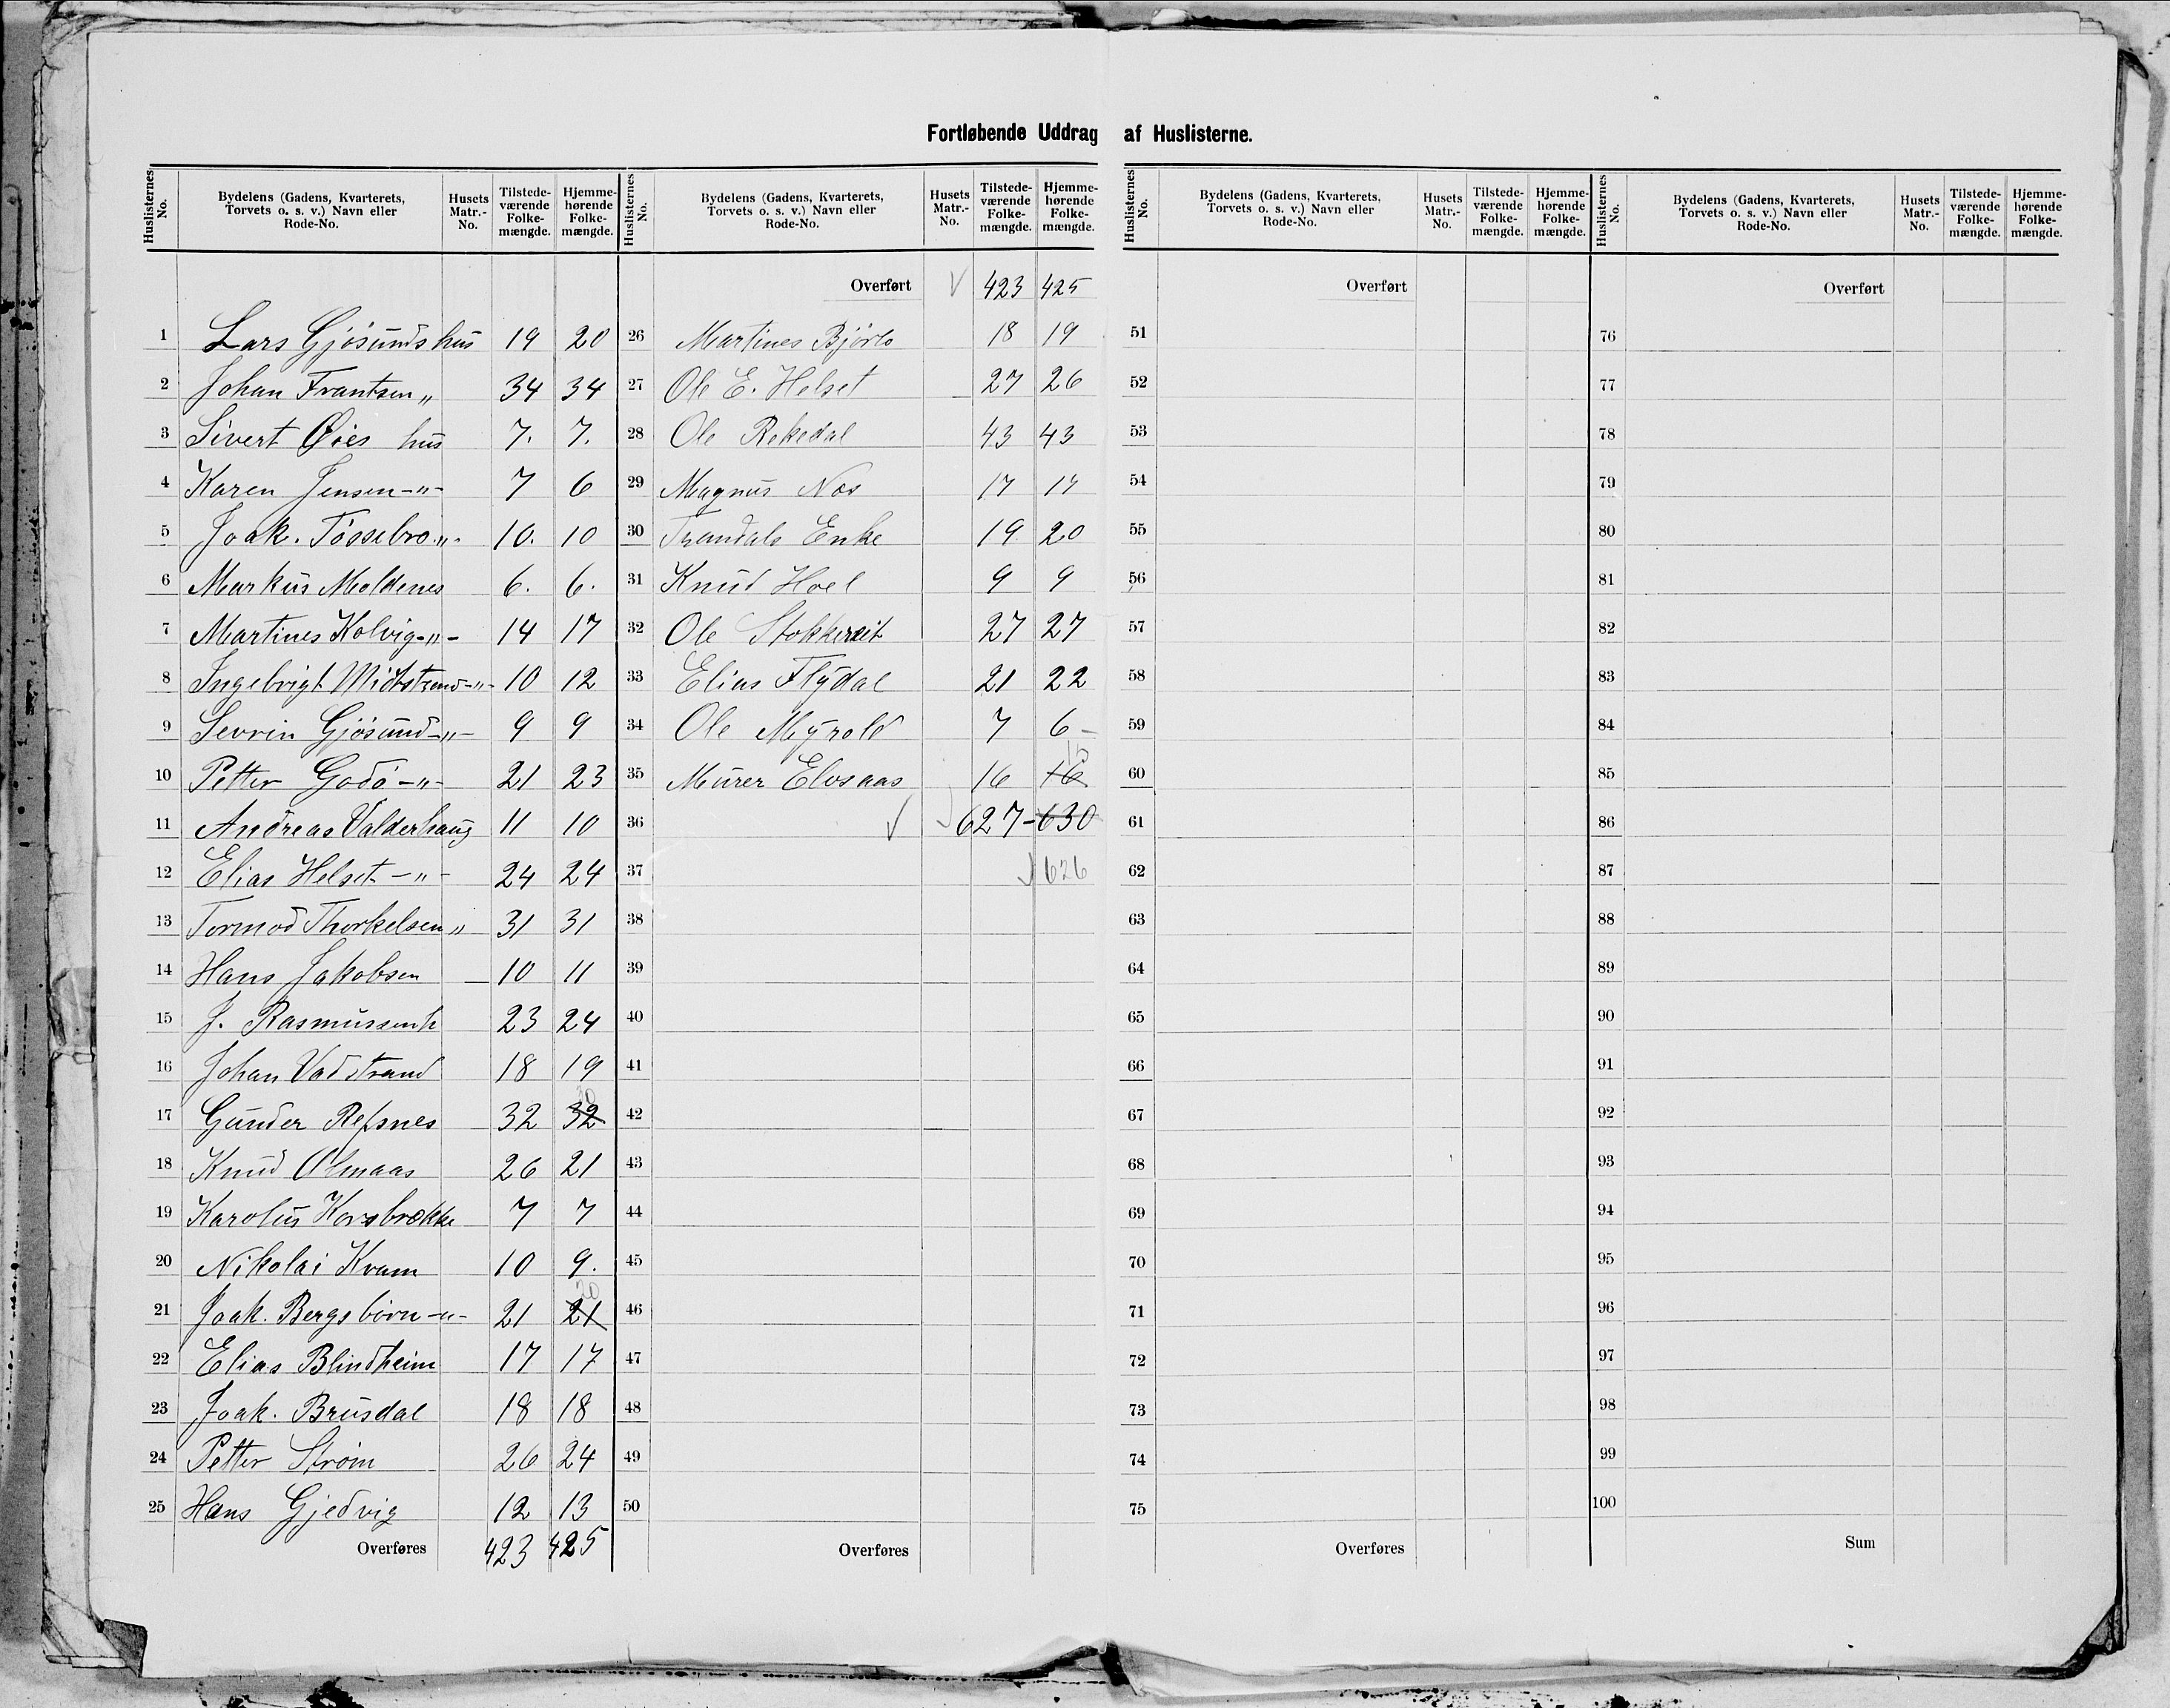 Fortløbende Uddrag af Huslisterne.
Huslisternes No. Bydelens (Gadens, Kvarterets, Torvets o. s. v.) Navn eller Rode-No. Husets Matr.-No. Tilstede-værende Folke-mængde. Hjemme-hørende Folke-mængde.
1 Lars Gjøsunds hus 19 20
2 Johan Frantsen „ 34 34
3 Sivert Øies hus 7. 7.
4 Karen Jensen -„- 7 6
5 Joak. Tøssebro „- 10. 10
6 Markus Moldenes 6. 6.
7 Martines Kolvig -„- 14 17
8 Ingebrigt Midtstrand -„- 10 12
9 Sevrin Gjøsund -„- 9 9
10 Petter Godø -„- 21 23
11 Andreas Valderhaug 11 10
12 Elias Helset -„- 24 24
13 Tormod Thorkelsen „ 31 31
14 Hans Jakobsen 10 11
15 J. Rasmussenh 23 24
16 Johan Vadstrand 18 19
17 Gunder Refsnes 32 32 30
18 Knud Olmaas 26 21
19 Karolus Korsbrække 7 7
20 Nikolai Kvam 10 9.
21 Joak. Bergs børn -„- 21 21 20
22 Elias Blindheim 17 17
23 Joak. Brusdal 18 18
24 Petter Strøm 26 24
25 Hans Gjedvig 12 13
Overføres 423 425
Huslisternes No. Bydelens (Gadens, Kvarterets, Torvets o. s. v.) Navn eller Rode-No. Husets Matr.-No. Tilstede-værende Folke-mængde. Hjemme-hørende Folke-mængde.
Overført 423 425
26 Martines Bjørlo 18 19
27 Ole E. Helset 27 26
28 Ole Rekedal 43 43
29 Magnus Nos 17 17
30 Trandals Enke 19 20
31 Knud Hoel 9 9
32 Ole Stokkereit 27 27
33 Elias Flydal 21 22
34 Ole Myrold 7 6 -
35 Murer Elvsaas 16 16 15
36 627 - 630
37 626
38
39
40
41
42
43
44
45
46
47
48
49
50
Overføres
Huslisternes No. Bydelens (Gadens, Kvarterets, Torvets o. s. v.) Navn eller Rode-No. Husets Matr.-No. Tilstede-værende Folke-mængde. Hjemme-hørende Folke-mængde.
Overført
51
52
53
54
55
56
57
58
59
60
61
62
63
64
65
66
67
68
69
70
71
72
73
74
75
Overføres
Huslisternes No. Bydelens (Gadens, Kvarterets, Torvets o. s. v.) Navn eller Rode-No. Husets Matr.-No. Tilstede-værende Folke-mængde. Hjemme-hørende Folke-mængde.
Overført
76
77
78
79
80
81
82
83
84
85
86
87
88
89
90
91
92
93
94
95
96
97
98
99
100
Sum